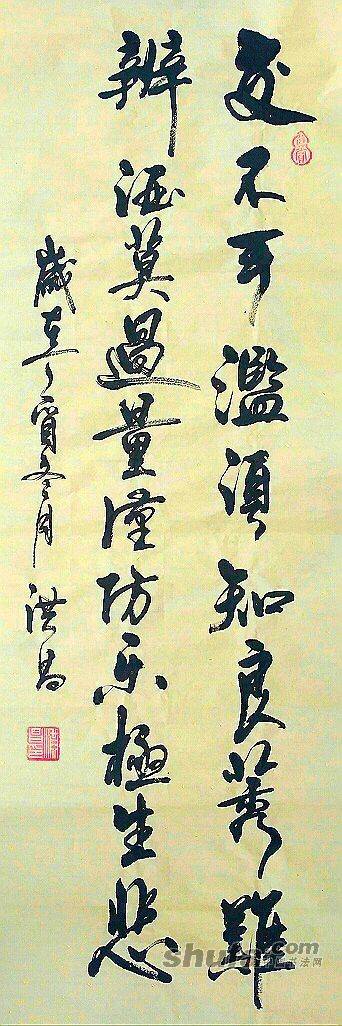 交不可濫須知良莠難
辨酒莫過量謹防乐極生悲
歲在寅冬月 洪昌
shufa.com
书法网